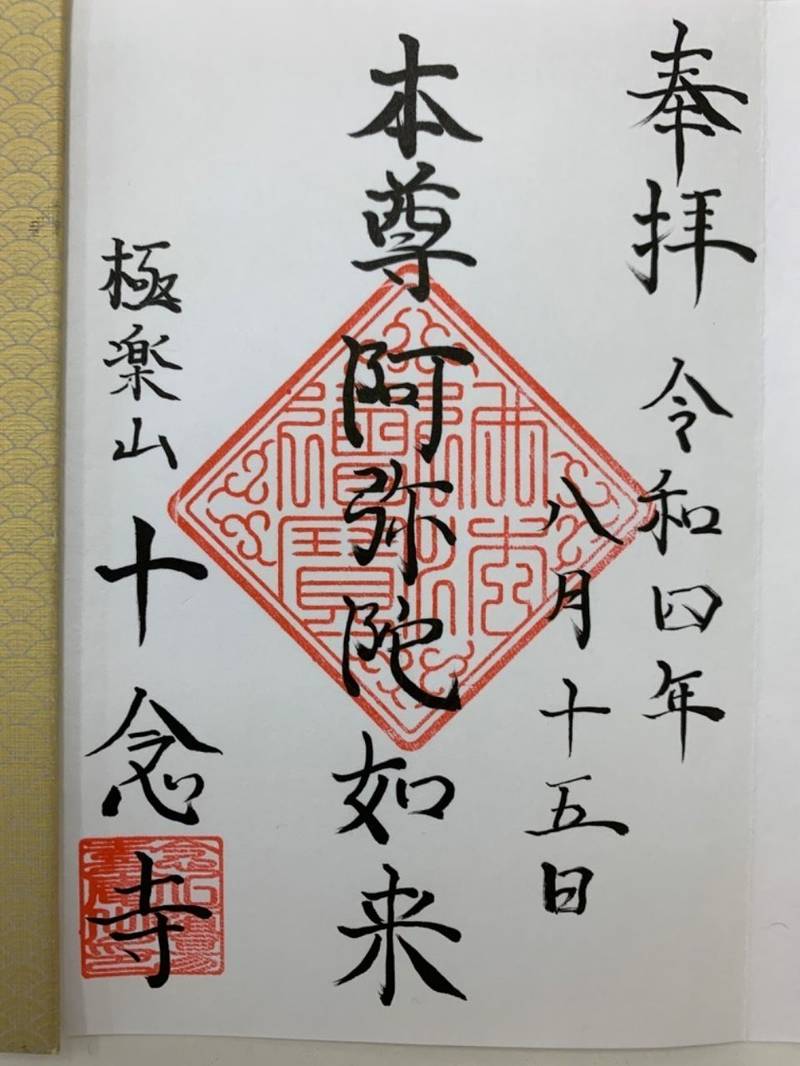 奉拝 令和四年
八月十五日
本尊 阿弥陀如来
極楽山 十念寺
佛法僧寳